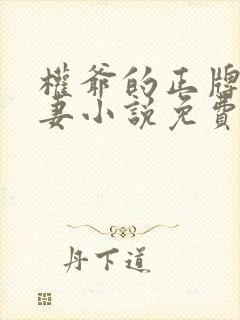 權爺的正牌
妻小說免費
丹下道